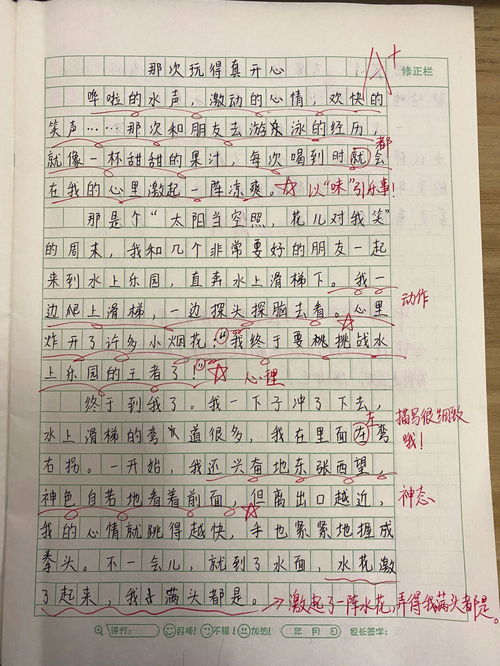 那次玩得真开心
A+
修正栏
哗啦的水声，激动的心情，欢快的
笑声……那次和朋友去游泳的经历，
就像一杯甜甜的果汁，每次喝到时就会
都
在我的心里激起一阵凉爽。
以"味"引乐事!
那是个"太阳当空照，花儿对我笑"
的周末，我和几个非常要好的朋友一起
来到水上乐园，直奔水上滑梯下。我一
边爬上滑梯，一边探头探脑去看。心里
动作
炸开了许多小烟花!"我终于要挑战水
上乐园的王者了!"
心理
终于到我了。我一下子冲了下去，
水上滑梯的弯道很多，我在里面左弯
左
描写很细致
哦!
右拐。一开始，我还兴奋地东张西望，
神色自若地看着前面，但离出口越近，
神态
我的心情就跳得越快，手也紧紧地握成
拳头。不一会儿，就到了水面，水花激
了起来，我满头都是。
→激起了一阵水花，弄得我满头都是。
评分: 好棒! 不错! 加油! 年 月 日 家长签字: